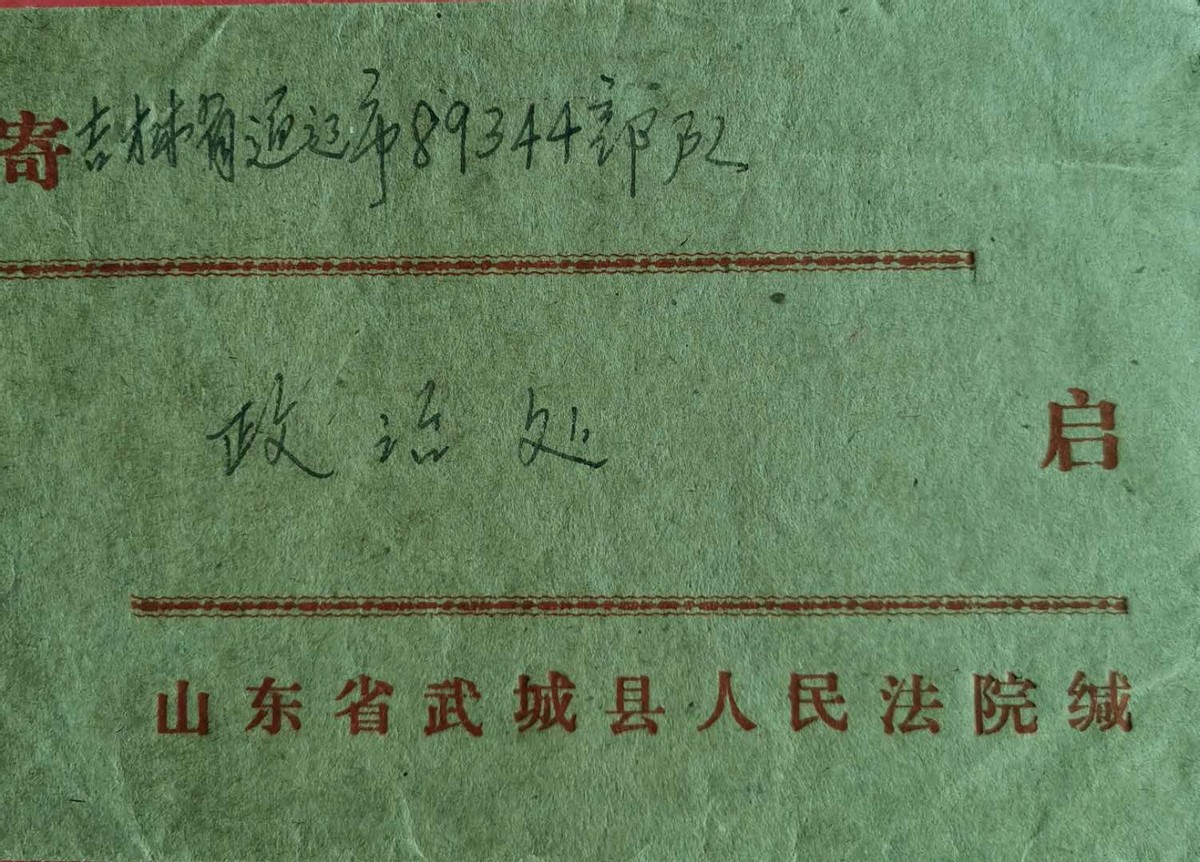 寄 吉林省通辽市89344部队
政治处 启
山东省武城县人民法院缄